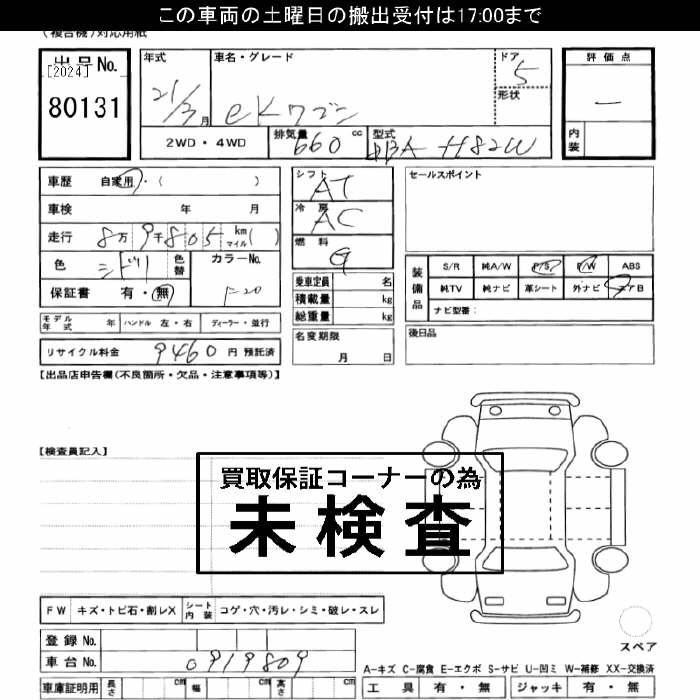 この車両の土曜日の搬出受付は17:00まで
(複合機)対応用紙
出品No.
[2024]
80131
年式
21/3月
車名・グレード
eKワゴン
ドア
5
形状
評価点
—
内装
2WD・4WD
排気量
660 cc
型式
DBA H82W
車歴 自家用・( )
車検 年 月
走行 8万9千805 km マイル ( )
色 シドリ 色替
カラーNo.
F20
保証書 有・無
シフト
AT
冷房
AC
燃料
G
乗車定員 名
積載量 kg
総重量 kg
セールスポイント
装備品
S/R 純A/W P/S P/W ABS
純TV 純ナビ 革シート 外ナビ エアB
ナビ型番:
モデル年式 年 ハンドル 左・右 ディーラー・並行
リサイクル料金 9460 円 預託済
名変期限
月 日
後日品
【出品店申告欄(不良箇所・欠品・注意事項等)】
【検査員記入】
買取保証コーナーの為
未検査
FW キズ・トビ石・割レX シート内装 コゲ・穴・汚レ・シミ・破レ・スレ
登録No.
車台No. 0919809
車庫証明用 長さ cm 幅 cm 高さ cm
スペア
A-キズ C-腐食 E-エクボ S-サビ U-凹ミ W-補修 XX-交換済
工具 有・無 ジャッキ 有・無